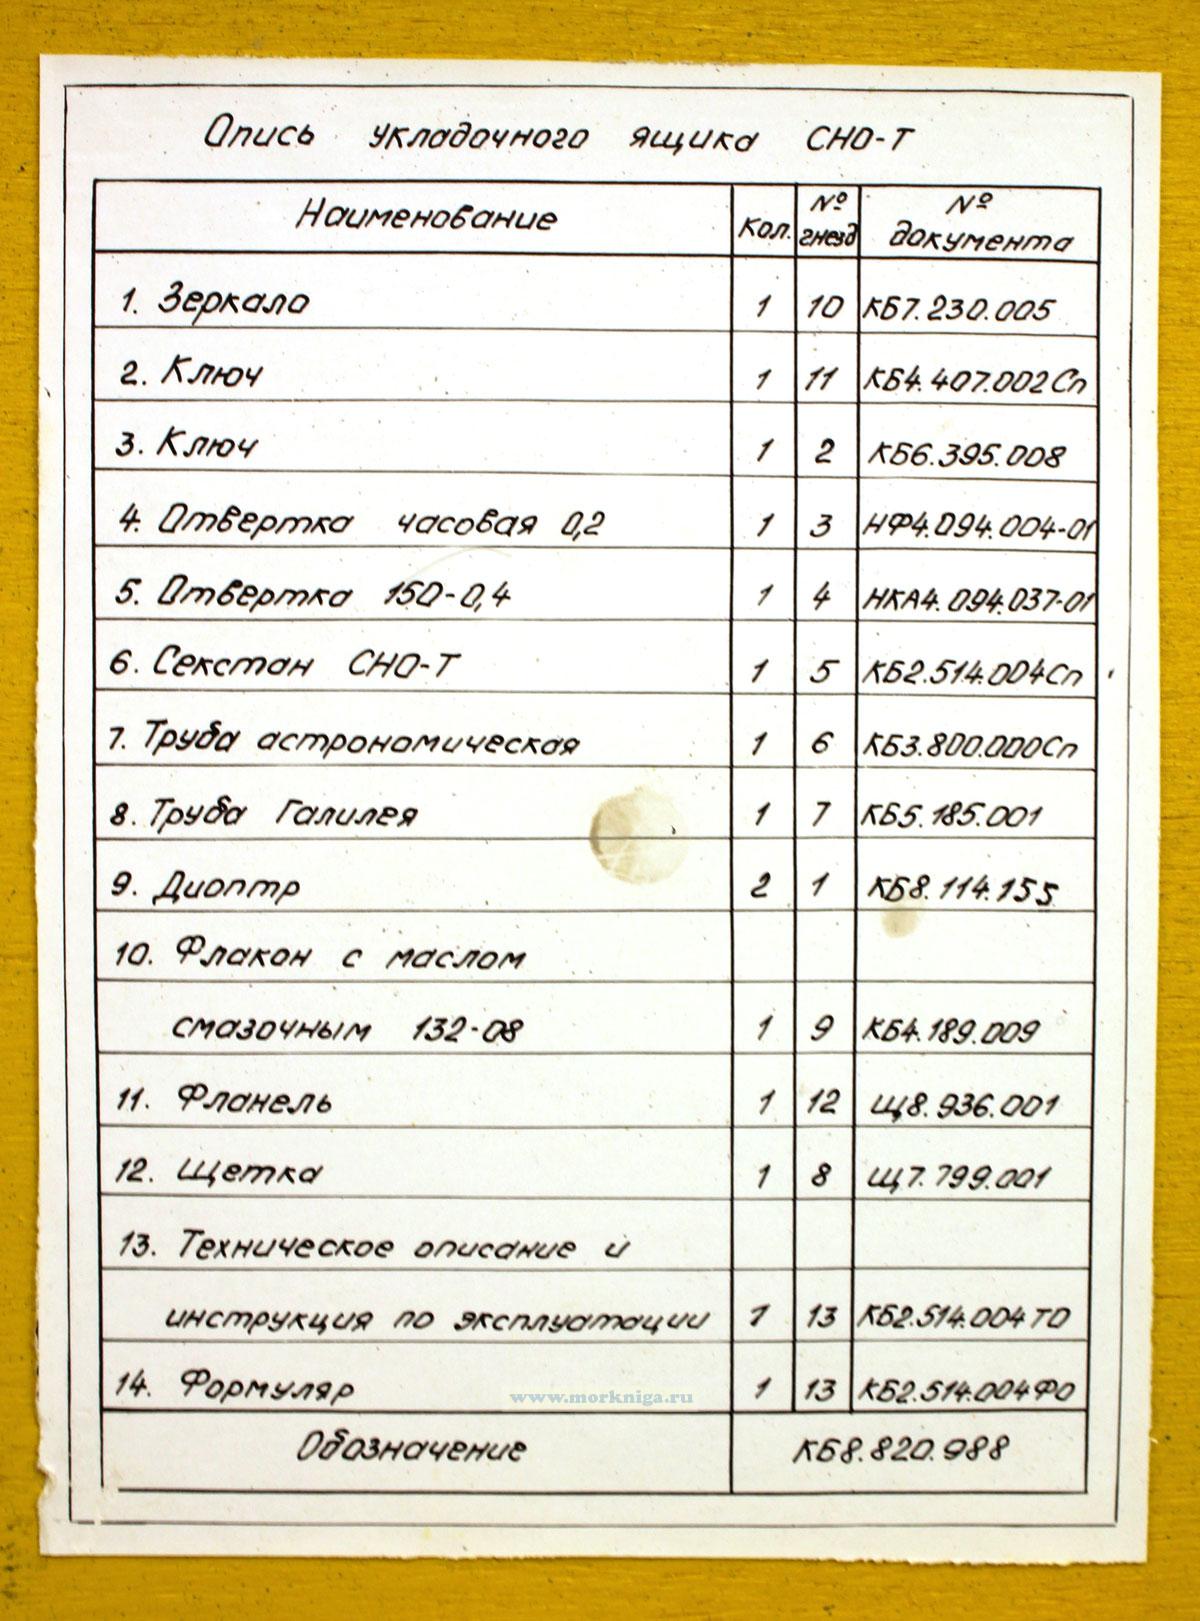 Опись укладочного ящика СНО-Т
Наименование Кол. № гнезд № документа
1. Зеркало 1 10 КБ7.230.005
2. Ключ 1 11 КБ4.407.002Сп
3. Ключ 1 2 КБ6.395.008
4. Отвертка часовая 0,2 1 3 НФ4.094.004-01
5. Отвертка 150-0,4 1 4 НКА4.094.037-01
6. Секстан СНО-Т 1 5 КБ2.514.004Сп
7. Труба астрономическая 1 6 КБ3.800.000Сп
8. Труба Галилея 1 7 КБ5.185.001
9. Диоптр 2 1 КБ8.114.155
10. Флакон с маслом
смазочным 132-08 1 9 КБ4.189.009
11. Фланель 1 12 Щ8.936.001
12. Щетка 1 8 Щ7.799.001
13. Техническое описание и
инструкция по эксплуатации 1 13 КБ2.514.004ТО
14. Формуляр 1 13 КБ2.514.004ФО
www.morkniga.ru
Обозначение КБ8.820.988